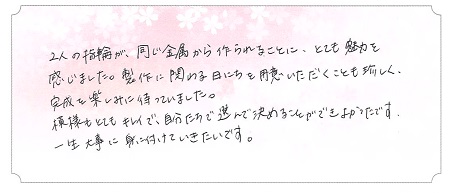 2人の指輪が、同じ金属から作られることに、とても魅力を
感じました。製作に関わる日にちを用意いただくことも珍しく、
完成を楽しみに待っていました。
模様もとてもキレイで、自分たちで選んで決めることができよかったです。
一生大事に身に付けていきたいです。